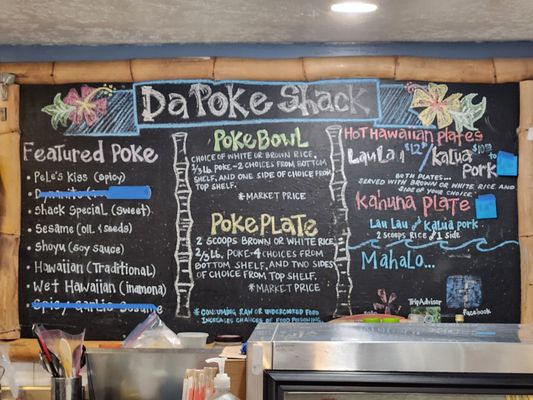 Da Poke Shack
Featured Poke
Pele's Kiss (spicy)
Dynamite
Shack Special (sweet)
Sesame (oil & seeds)
Shoyu (soy sauce)
Hawaiian (Traditional)
Wet Hawaiian (inamona)
Spicy Garlic Sesame
Poke Bowl
CHOICE OF WHITE OR BROWN RICE,
1/3 lb. POKE-2 CHOICES FROM BOTTOM
SHELF, AND ONE SIDE OF CHOICE FROM
TOP SHELF.
*MARKET PRICE
Poke Plate
2 SCOOPS BROWN OR WHITE RICE
2/3 lb. POKE-4 CHOICES FROM
BOTTOM SHELF, AND TWO SIDES
OF CHOICE FROM TOP SHELF.
*MARKET PRICE
*CONSUMING RAW OR UNDERCOOKED FOOD
INCREASES CHANCES OF FOOD POISONING
Hot Hawaiian Plates
Lau Lau / Kalua Pork
BOTH PLATES...
SERVED WITH BROWN OR WHITE RICE AND
SIDE OF YOUR CHOICE.
Kahuna Plate
Lau Lau and Kalua Pork
2 Scoops Rice and 1 Side
Mahalo...
TripAdvisor
Facebook